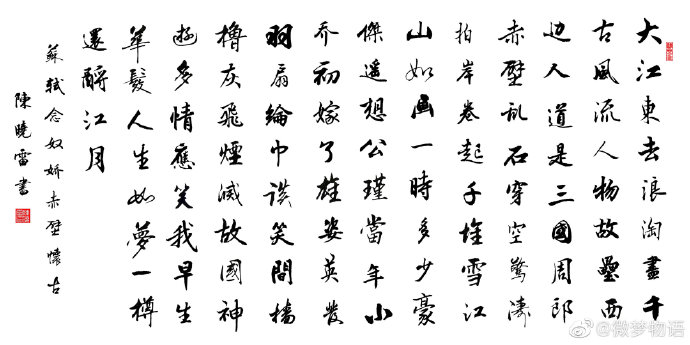 大江東去浪淘盡千
古風流人物故壘西
边人道是三國周郎
赤壁乱石穿空驚濤
拍岸卷起千堆雪江
山如画一時多少豪
傑遥想公瑾當年小
乔初嫁了雄姿英發
羽扇綸巾談笑間檣
櫓灰飛煙滅故國神
遊多情應笑我早生
華髮人生如夢一樽
還酹江月
蘇軾念奴嬌赤壁懷古
陳曉雷書
@微梦物语